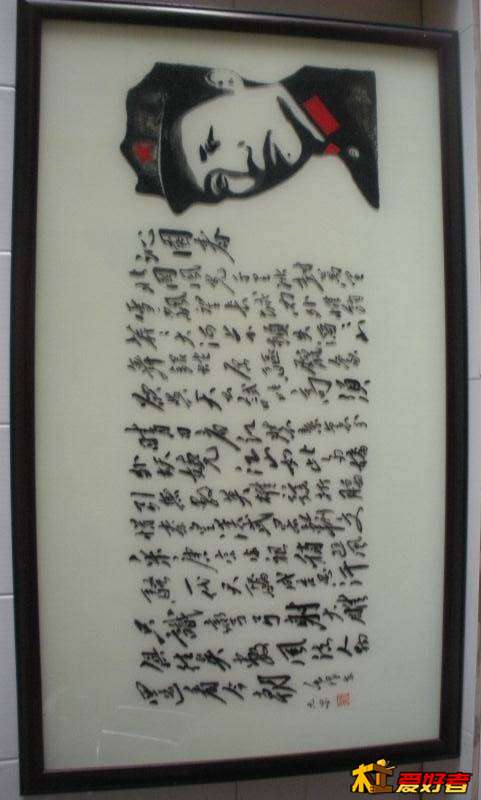 沁园春
北国风光千里冰封万里
雪飘望长城内外惟余莽
莽大河上下顿失滔滔山
舞银蛇原驰蜡象欲与
天公试比高须
晴日看红装素裹分
外妖娆江山如此多娇
引无数英雄竞折腰
惜秦皇汉武略输文
采唐宗宋祖稍逊风
骚一代天骄成吉思汗
只识弯弓射大雕
俱往矣数风流人物
还看今朝
爱好者